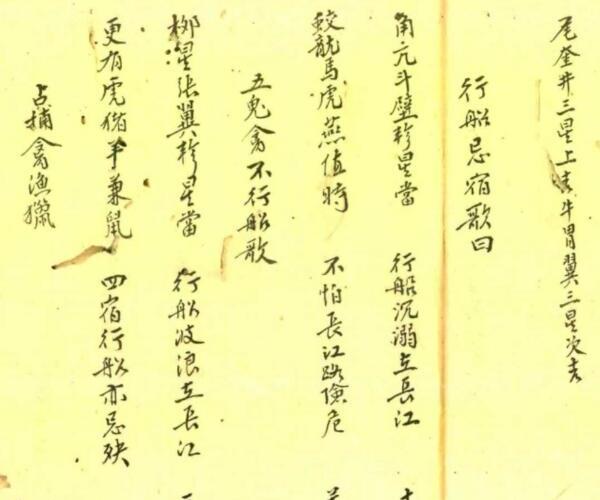 尾奎井三星上吉牛胃翼三星次吉
行船忌宿歌曰
角亢斗壁軫星當 行船沉溺在長江
蛟龍馬虎燕值時 不怕長江路險危
五鬼禽不行船歌
柳星張翼軫星當 行船波浪在長江
更有虎猪羊兼鼠 四宿行船亦忌殃
占捕禽漁獵